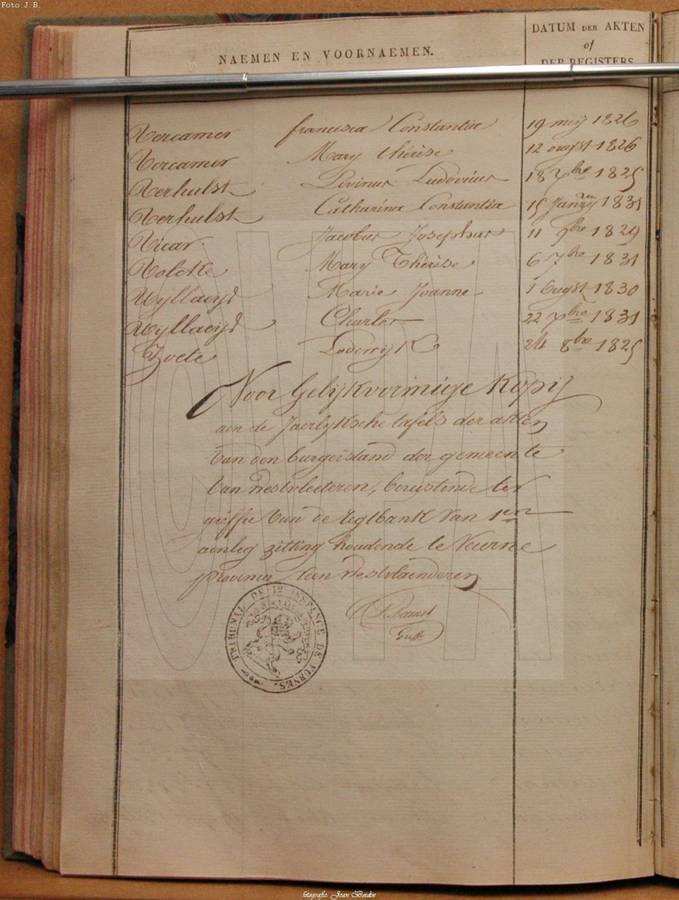 Foto J. B.
NAEMEN EN VOORNAEMEN.
DATUM DER AKTEN
of
DER REGISTERS
Vercamer francisca Constantia 19 meij 1826
Vercamer Mary thérèse 12 ougst 1826
Verhulst Livinus Ludovicus 18 1825
Verhulst Catharina Constantia 15 1831
Vicar Jacobus Josephus 11 9bre 1829
Mary Thérèse 6 7bre 1831
Wyllaeys Marie Joanne 1 Ougst 1830
Wyllaeys Charles 22 1831
Zoete Lodewyk 24 8bre 1825
Voor Gelijkvormige Kopij
aen de Jaerlyksche tafels der akten
van den burgerstand der gemeente
van westvleteren, berustende ter
griffie van de regtbank van 1en
aenleg zitting houdende te Veurne
provincie van westvlaenderen
TRIBUNAL DE 1E INSTANCE DE FURNES.
fotografie. Jean